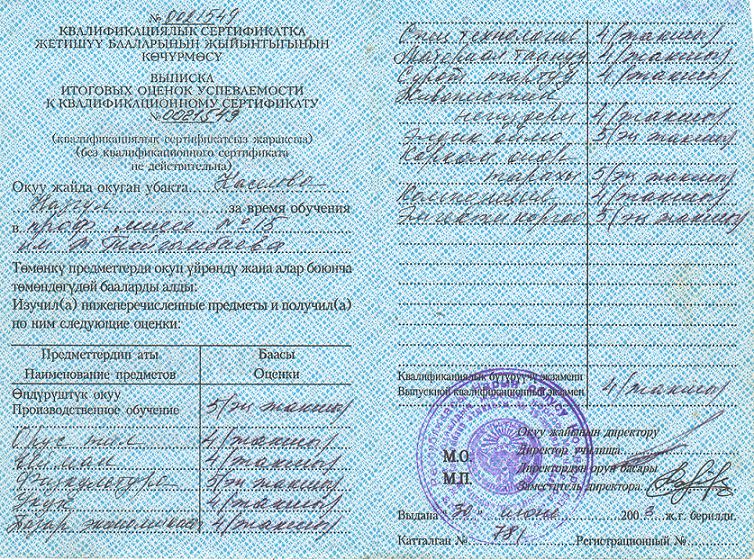 № 0021549
КВАЛИФИКАЦИЯЛЫК СЕРТИФИКАТКА
ЖЕТИШҮҮ БААЛАРЫНЫН ЖЫЙЫНТЫГЫНЫН
КӨЧҮРМӨСҮ
ВЫПИСКА
ИТОГОВЫХ ОЦЕНОК УСПЕВАЕМОСТИ
К КВАЛИФИКАЦИОННОМУ СЕРТИФИКАТУ
№ 0021549
(квалификациялык сертификатсыз жараксыз)
(без квалификационного сертификата
не действительна)
Окуу жайда окуган убакта
Наргул за время обучения
в проф. лицее №15
им. М Тойгомбаева
Төмөнкү предметтерди окуп үйрөндү жана алар боюнча
төмөндөгүдөй бааларды алды:
Изучил(а) нижеперечисленные предметы и получил(а)
по ним следующие оценки:
Предметтердин аты Баасы
Наименование предметов Оценки
Өндүрүштүк окуу
Производственное обучение 5/эң жакшы/
Орус тил 4/жакшы/
4/жакшы/
Физкультура 5/эң жакшы/
Укук 4/жакшы/
Базар экономикасы 4/жакшы/
Спец технология 4/жакшы/
Материал таануу 4/жакшы/
Сүрөт тартуу 4/жакшы/
Живопистин
негиздери 4/жакшы/
Элдик оймо 5/эң жакшы/
Көркөм өнөр
тарыхы 5/эң жакшы/
Композиция 4/жакшы/
Эмгекти коргоо 5/эң жакшы/
Квалификациялык бүтүрүүчү экзамени
Выпускной квалификационный экзамен 4/жакшы/
Окуу жайынын директору
М.О. Директор училища
Директордун орун басары
М.П. Заместитель директора
Выдана "30" июня 2003 ж.г. берилди.
Катталган № 781 Регистрационный №